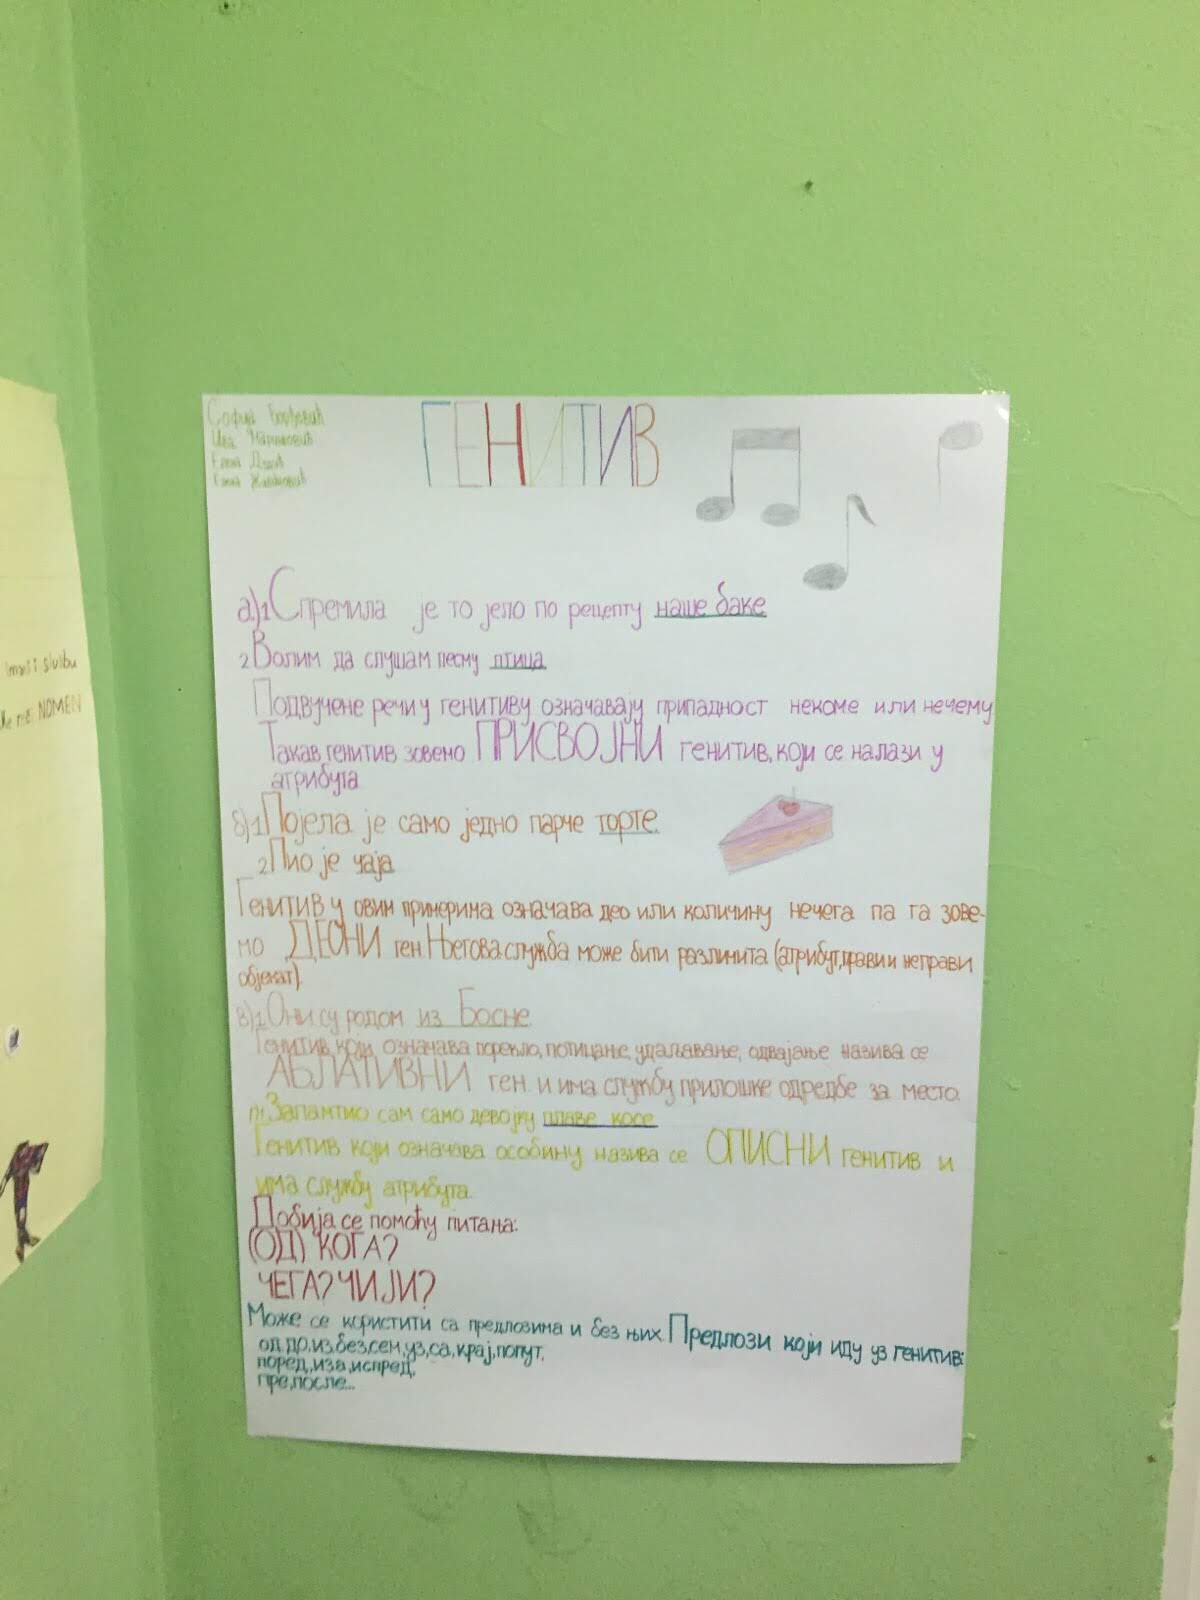 Софија Ђорђевић
Ива Маринковић
Елена
Елена
ГЕНИТИВ
а)1 Спремила је то јело по рецепту наше баке
2 Волим да слушам песму птица
Подвучене речи у генитиву означавају припадност некоме или нечему
Такав генитив зовемо ПРИСВОЈНИ генитив, који се налази у
атрибута
б)1 Појела је само једно парче торте.
2 Пио је чаја
Генитив у овим примерима означава део или количину нечега па га зове-
мо ДЕОНИ ген. Његова служба може бити различита (атрибут, прави и неправи
објекат).
в)1 Они су родом из Босне
Генитив који означава порекло, потицање, удаљавање, одвајање назива се
АБЛАТИВНИ ген. и има службу прилошке одредбе за место.
г)1 Запамтио сам само девојку плаве косе
Генитив који означава особину назива се ОПИСНИ генитив и
има службу атрибута.
Добија се помоћу питања:
(ОД) КОГА?
ЧЕГА? ЧИЈИ?
Може се користити са предлозима и без њих. Предлози који иду уз генитив:
од, до, из, без, сем, уз, са, крај, попут,
поред, иза, испред,
пре, после...
imali službu
NOMEN